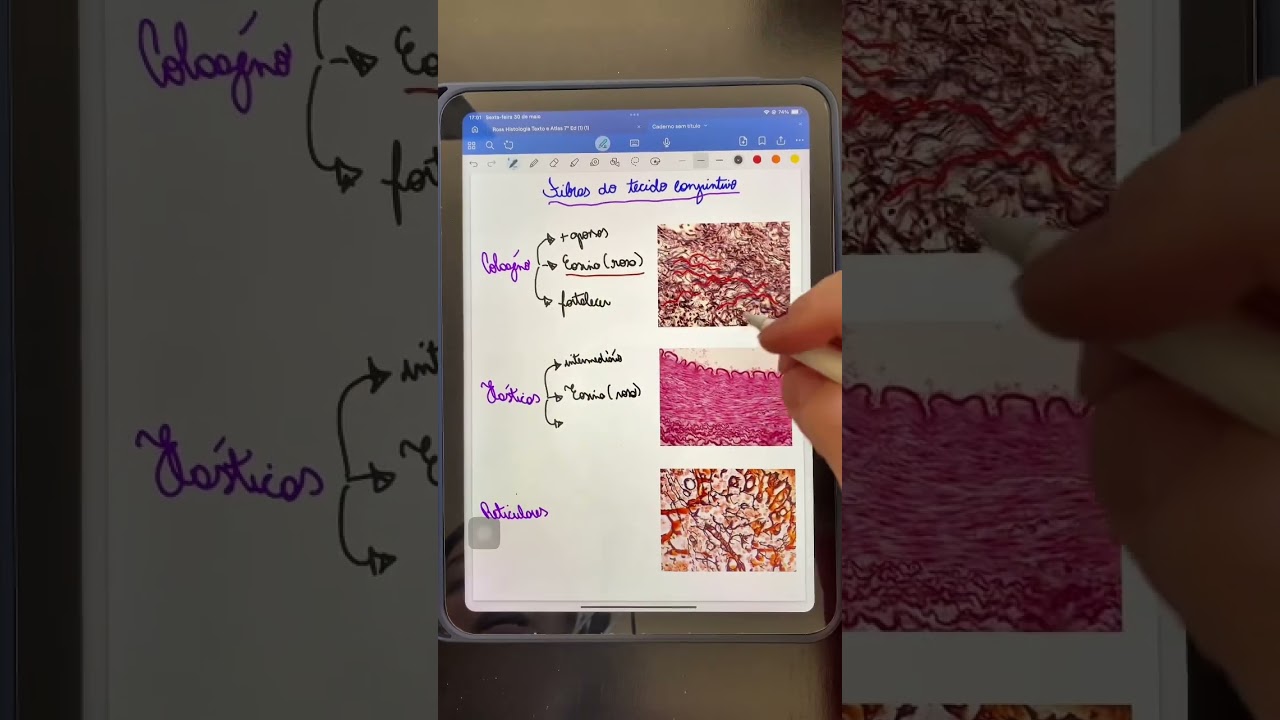 17:01 Sexta-feira 30 de maio
74%
Ross Histologia Texto e Atlas 7ª Ed (1) (1)
Caderno sem título
Fibras do tecido conjuntivo
+ grossos
Colágeno
Eosina (rosa)
fortalecer
intermediário
Elásticas
Eosina (rosa)
Reticulares